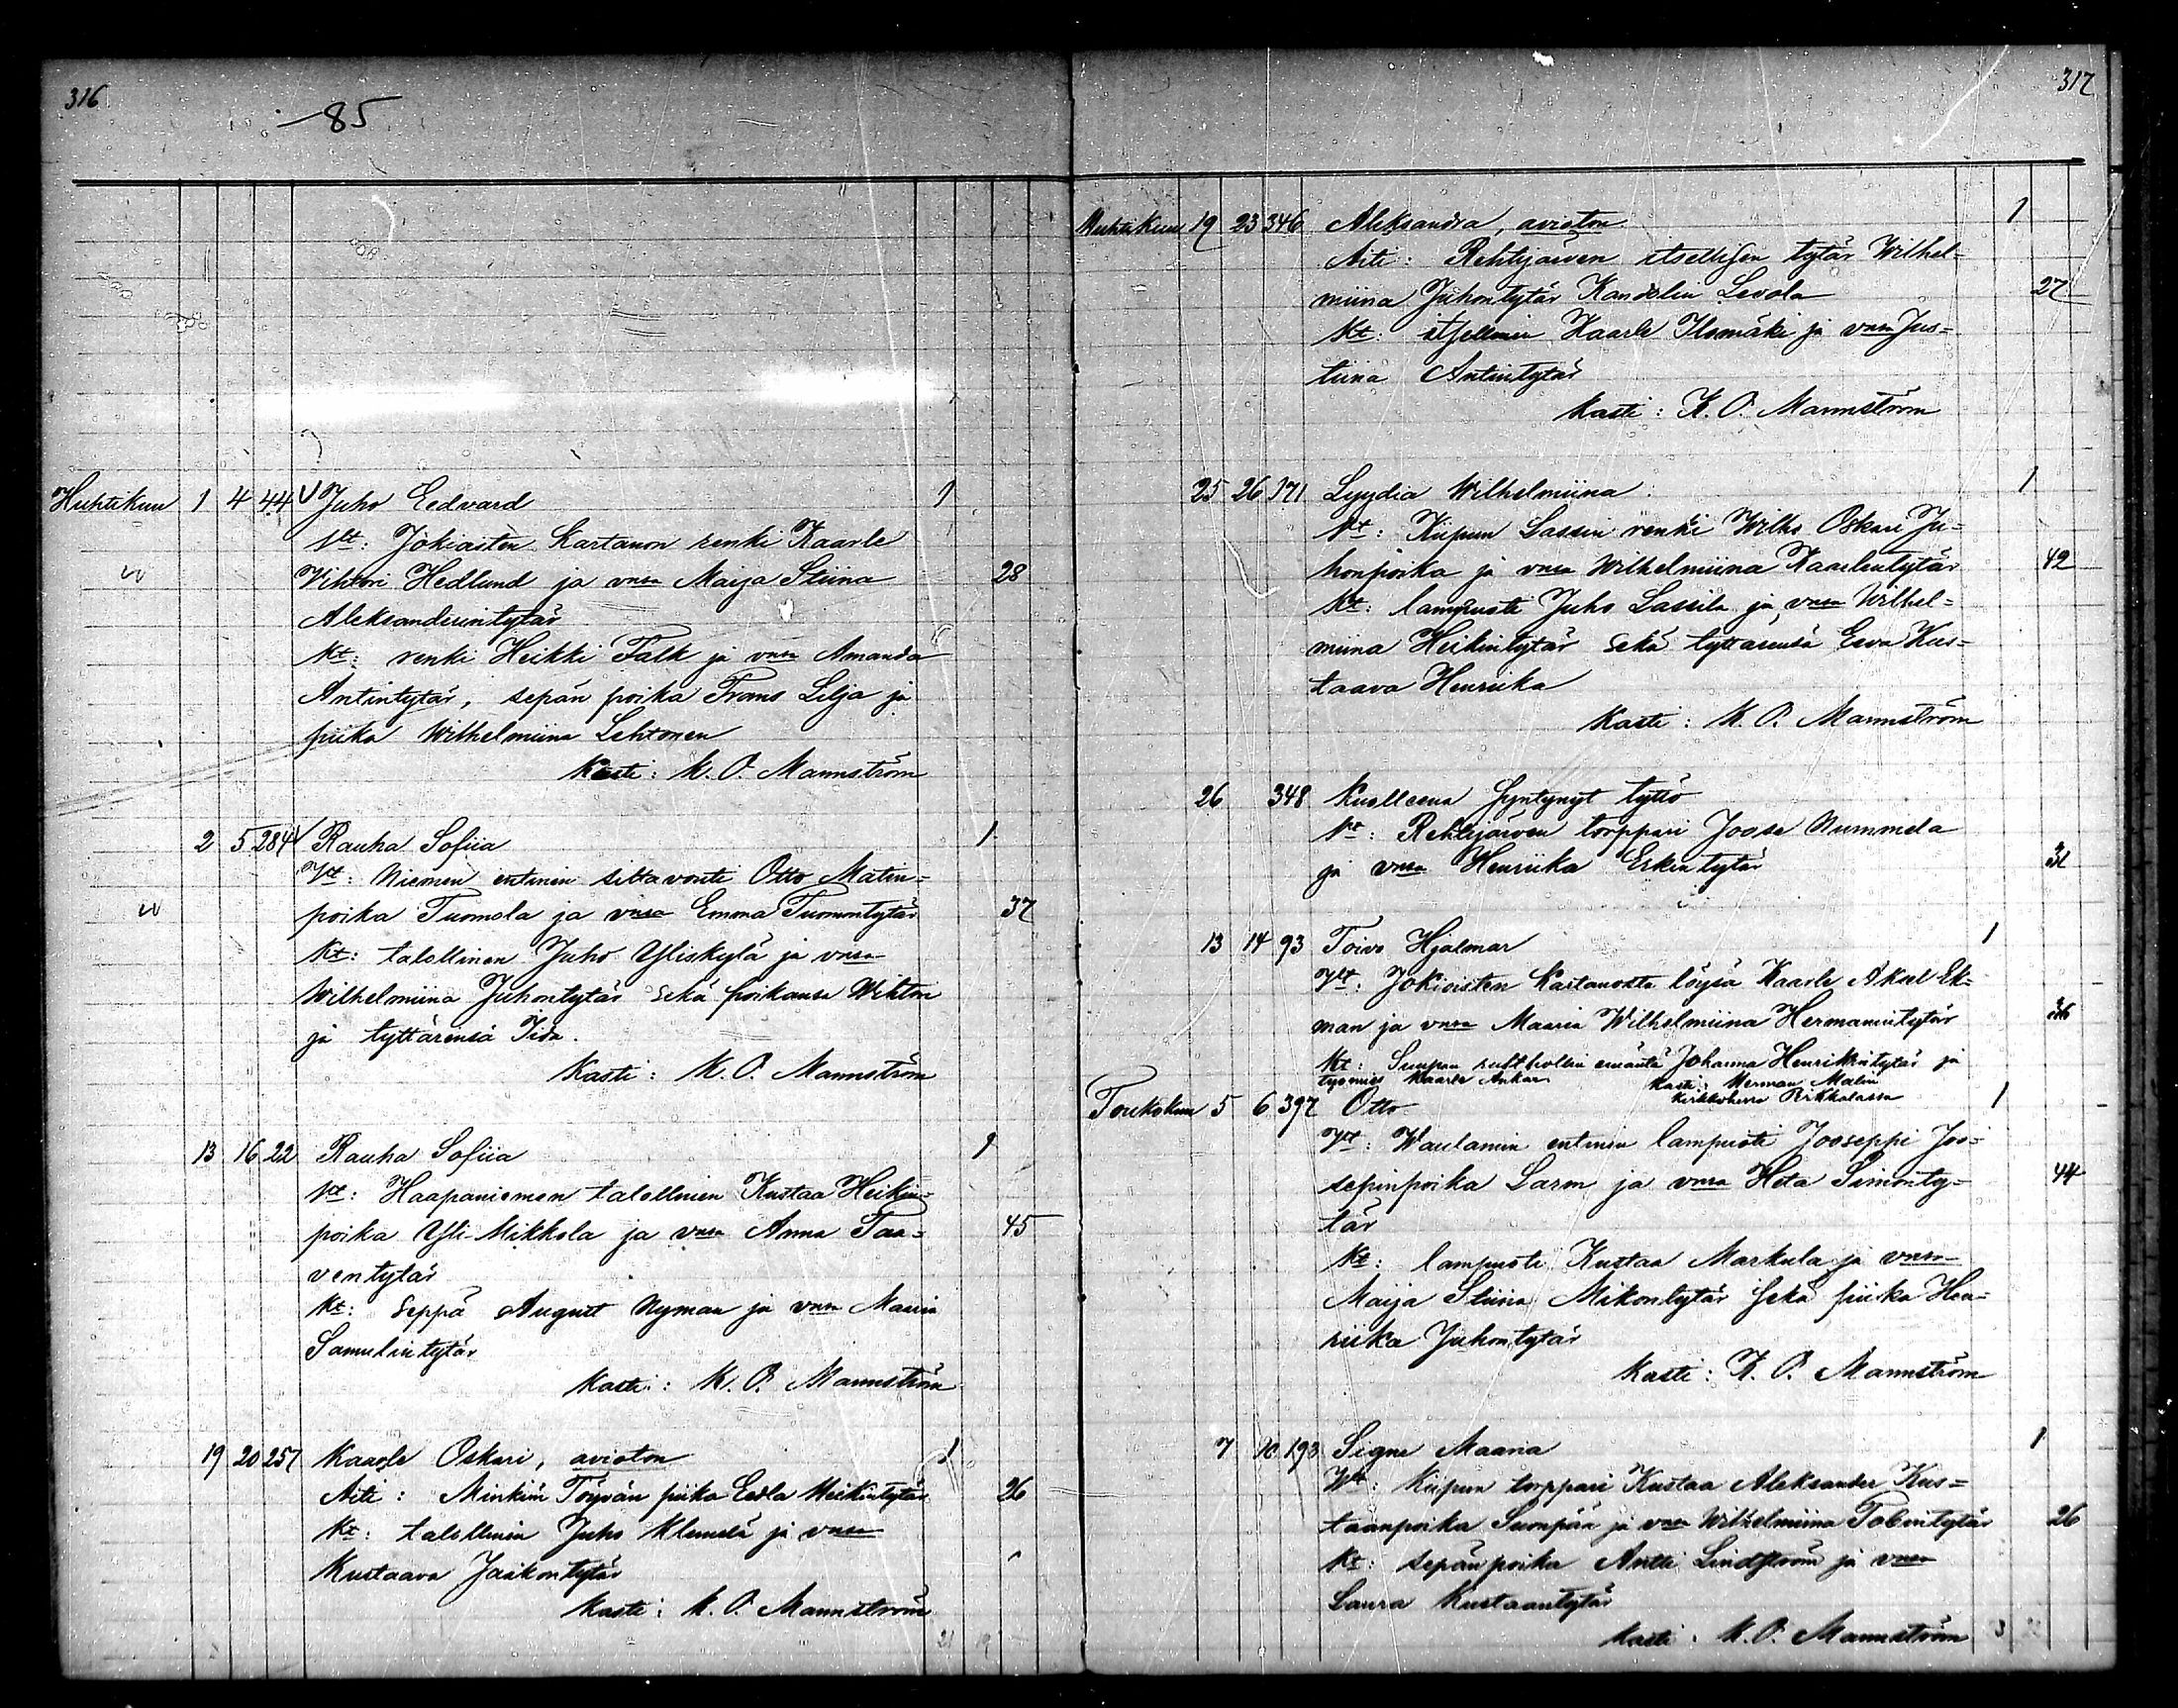 316
85
Huhtikuu 1 4 44 Juho Eedvard 1
Vt: Jokioisten Kartanon renki Kaarle
Vihtori Hedlund ja vmsa Maija Stiina 28
Aleksanderintytär
Kt: renki Heikki Falk ja vmsa Amanda
Antintytär, sepän poika Frans Lilja ja
piika Wilhelmiina Lehtonen
Kasti: K. O. Mannström
2 5 284 Rauha Sofiia 1
Vt: Niemen entinen siltavouti Otto Matin=
poika Tuomola ja vmsa Emma Tuomontytär 37
Kt: talollinen Juho Yliskylä ja vmsa
Wilhelmiina Juhontytär sekä poikansa Wihtori
ja tyttärensä Iida.
Kasti: K. O. Mannström
13 16 22 Rauha Sofiia 1
Vt: Haapaniemen talollinen Kustaa Heikin=
poika Yli-Mikkola ja vmsa Anna Taa= 45
ventytär
Kt: Seppä August Nyman ja vmsa Maria
Samulintytär
Kasti: K. O. Mannström
19 20 257 Kaarle Oskari, avioton 1
Äiti: Minkiön Töyvän piika Eedla Heikintytär 26
Kt: talollinen Juho Klemelä ja vmsa
Kustaava Jaakontytär
Kasti: K. O. Mannström
21 19
317
Huhtikuu 19 23 346 Aleksandra, avioton 1
Äiti: Rehtijärven itsellisen tytär Wilhel=
miina Juhontytär Kandolin Levola 27
Kt: itsellinen Kaarle Ilomäki ja vmsa Jus=
tiina Antintytär
Kasti: K. O. Mannström
25 26 171 Lyydia Wilhelmiina 1
Vt: Kiipun Lassin renki Wilho Oskari Ju=
honpoika ja vmsa Wilhelmiina Kaarlentytär 42
Kt: lampuoti Juho Lassila ja vmsa Wilhel=
miina Heikintytär sekä tyttärensä Eeva Kus=
taava Henriika
Kasti: K. O. Mannström
26 348 Kuolleena syntynyt tyttö
Vt: Rehtijärven torppari Joose Nummela
ja vmsa Henriika Erkintytär
13 14 93 Toivo Hjalmar 1
Vt: Jokioisten Kartanosta löysä Kaarle Aksel Ek=
man ja vmsa Maaria Wilhelmiina Hermannintytär 36
Kt: rusthollin emäntä Johanna Henrikintytär ja
työmies Kaarle Kasti: Herman Malin
Kirkkoherra
Toukokuu 5 6 397 Otto 1
Vt: Waulammin entinen lampuoti Jooseppi Joo=
sepinpoika Larm ja vmsa Heta Simonty= 44
tär
Kt: lampuoti Kustaa Markula ja vmsa
Maija Stiina Mikontytär sekä piika Hen=
riika Juhontytär
Kasti: K. O. Mannström
7 10 193 Signe Maaria 1
Vt: Kiipun torppari Kustaa Aleksander Kus=
taanpoika Suonpää ja vmsa Wilhelmiina Tobintytär 26
Kt: sepänpoika Antti Lindström ja vmsa
Laura Kustaantytär
Kasti: K. O. Mannström 3